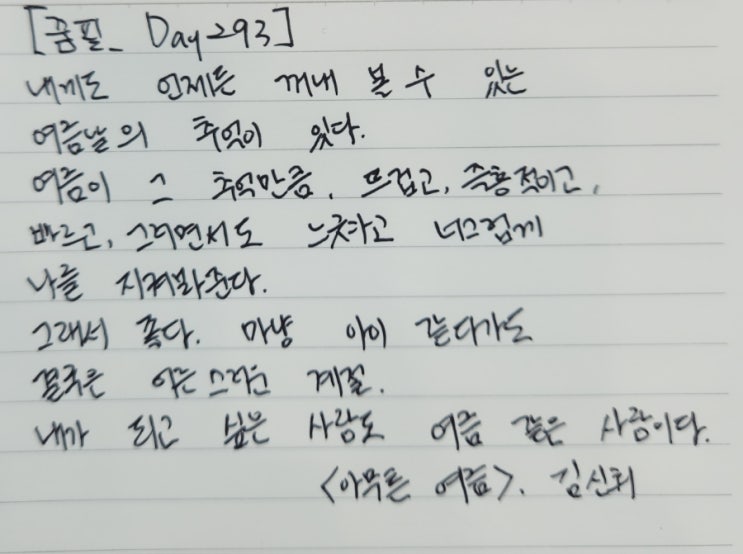 [꿈필_ Day 293]
내게도 언제든 꺼내 볼 수 있는
여름날의 추억이 있다.
여름이 그 추억만큼, 뜨겁고, 즉흥적이고,
빠르고, 그러면서도 느긋하고 너그럽게
나를 지켜봐준다.
그래서 좋다. 마냥 아이 같다가도
결국은 어른스러운 계절.
내가 되고 싶은 사람도 여름 같은 사람이다.
<아무튼 여름>. 김신회